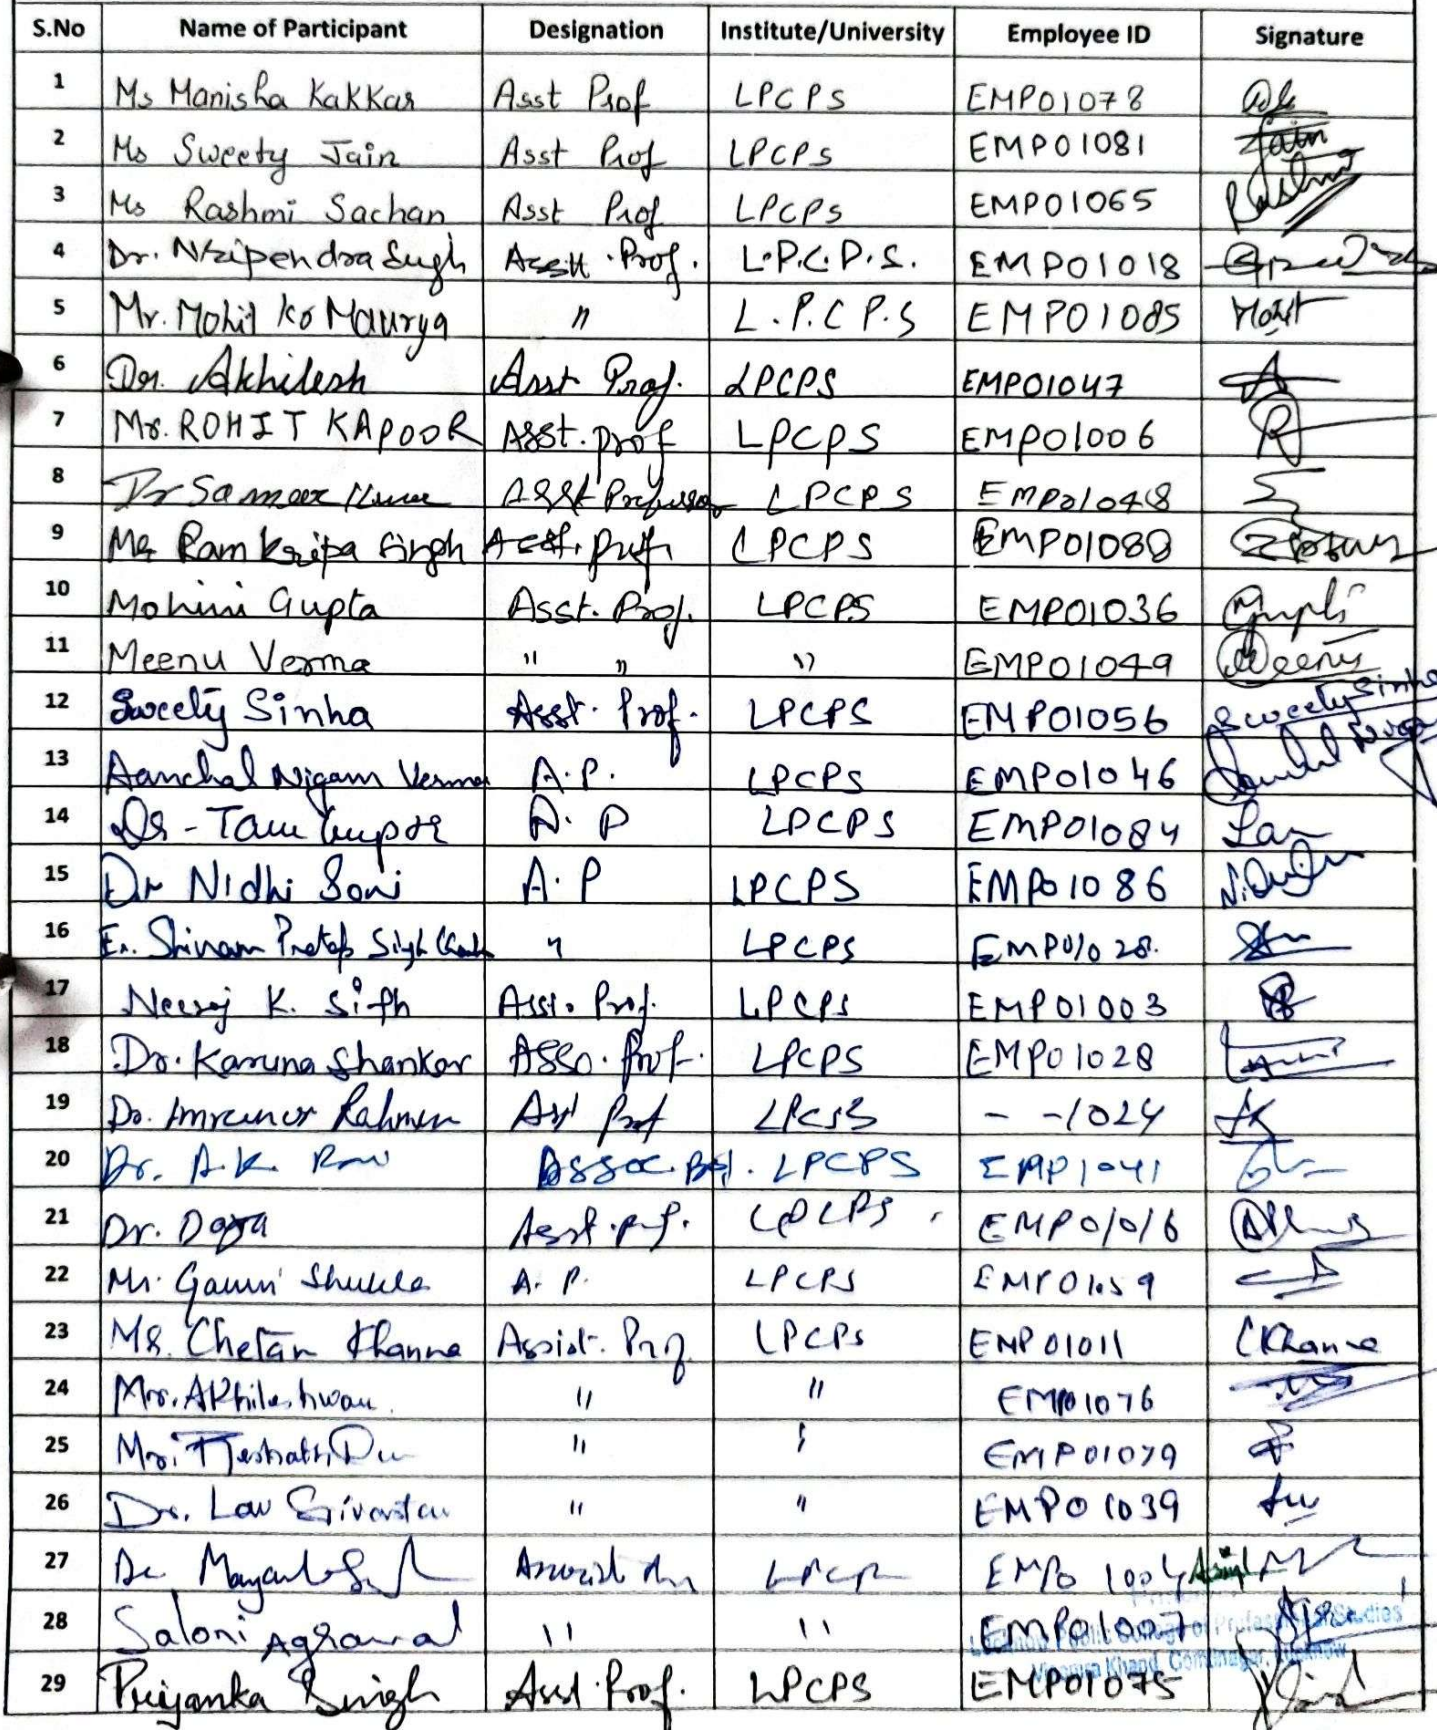 S.No Name of Participant Designation Institute/University Employee ID Signature
1 Ms Manisha Kakkar Asst Prof LPCPS EMP01078
2 Ms Sweety Jain Asst Prof LPCPS EMP01081 Jain
3 Ms Rashmi Sachan Asst Prof LPCPS EMP01065 Rashmi
4 Dr. Nripendra Singh Asstt. Prof. L.P.C.P.S. EMP01018
5 Mr. Mohit Kr Maurya " L.P.C.P.S EMP01085 Mohit
6 Dr. Akhilesh Asst Prof. LPCPS EMP01047
7 Mr. ROHIT KAPOOR Asst. prof LPCPS EMP01006
8 Dr Sameer Asst Professor LPCPS EMP01048
9 Mr Ram Kripa Singh Asst. prof. LPCPS
10 Mohini Gupta Asst. Prof. LPCPS EMP01036
11 Meenu Verma " " " EMP01049 Meenu
12 Sweety Sinha Asst. Prof. LPCPS EMP01056 Sweety Sinha
13 Aanchal Nigam Verma A.P. LPCPS EMP01046
14 Dr - A. P LPCPS EMP01084
15 Dr Nidhi Soni A.P LPCPS EMP01086
16 Er. Shivam Pratap Singh " LPCPS EMP01028.
17 Neeraj K. Singh Asst. Prof. LPCPS EMP01003
18 Dr. Karuna Shankar Asso. Prof. LPCPS EMP01028
19 Dr. Imranur Rahman Asst Prof - -1024
20 Dr. A.K. Assoc. Prof. LPCPS EMP1041
21 Dr. Asst. prof. LPCPS EMP01016
22 Gauri Shukla A. P. LPCPS EMP01059
23 Mr. Chetan Khanna Assist. Prof LPCPS EMP01011 CKhanna
24 Mr. " " EMP01076
25 " EMP01079
26 Dr. Lav Srivastav " " EMP01039
27 Dr Mayank LPCPS EMP01004
28 Saloni Agrawal " " EMP01007
29 Priyanka Singh Asst. Prof. LPCPS EMP01075